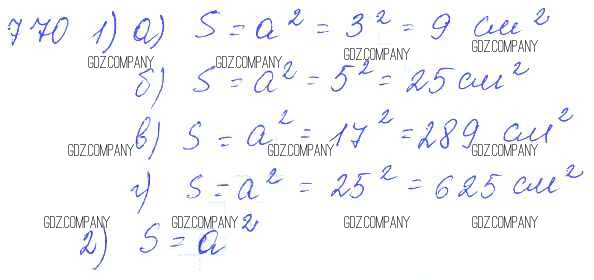 770 1) а) S = a² = 3² = 9 см²
GDZ.COMPANY GDZ.COMPANY GDZ.COMPANY GDZ.COMPANY
б) S = a² = 5² = 25 см²
в) S = a² = 17² = 289 см²
GDZ.COMPANY GDZ.COMPANY GDZ.COMPANY GDZ.COMPANY
г) S = a² = 25² = 625 см²
GDZ.COMPANY GDZ.COMPANY GDZ.COMPANY GDZ.COMPANY
2) S = a²